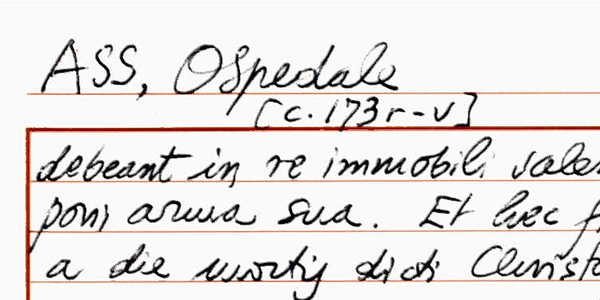 ASS, Ospedale
[c. 173r-v]
debeant in re immobili
poni arma sua. Et hec
a die mortis dicti